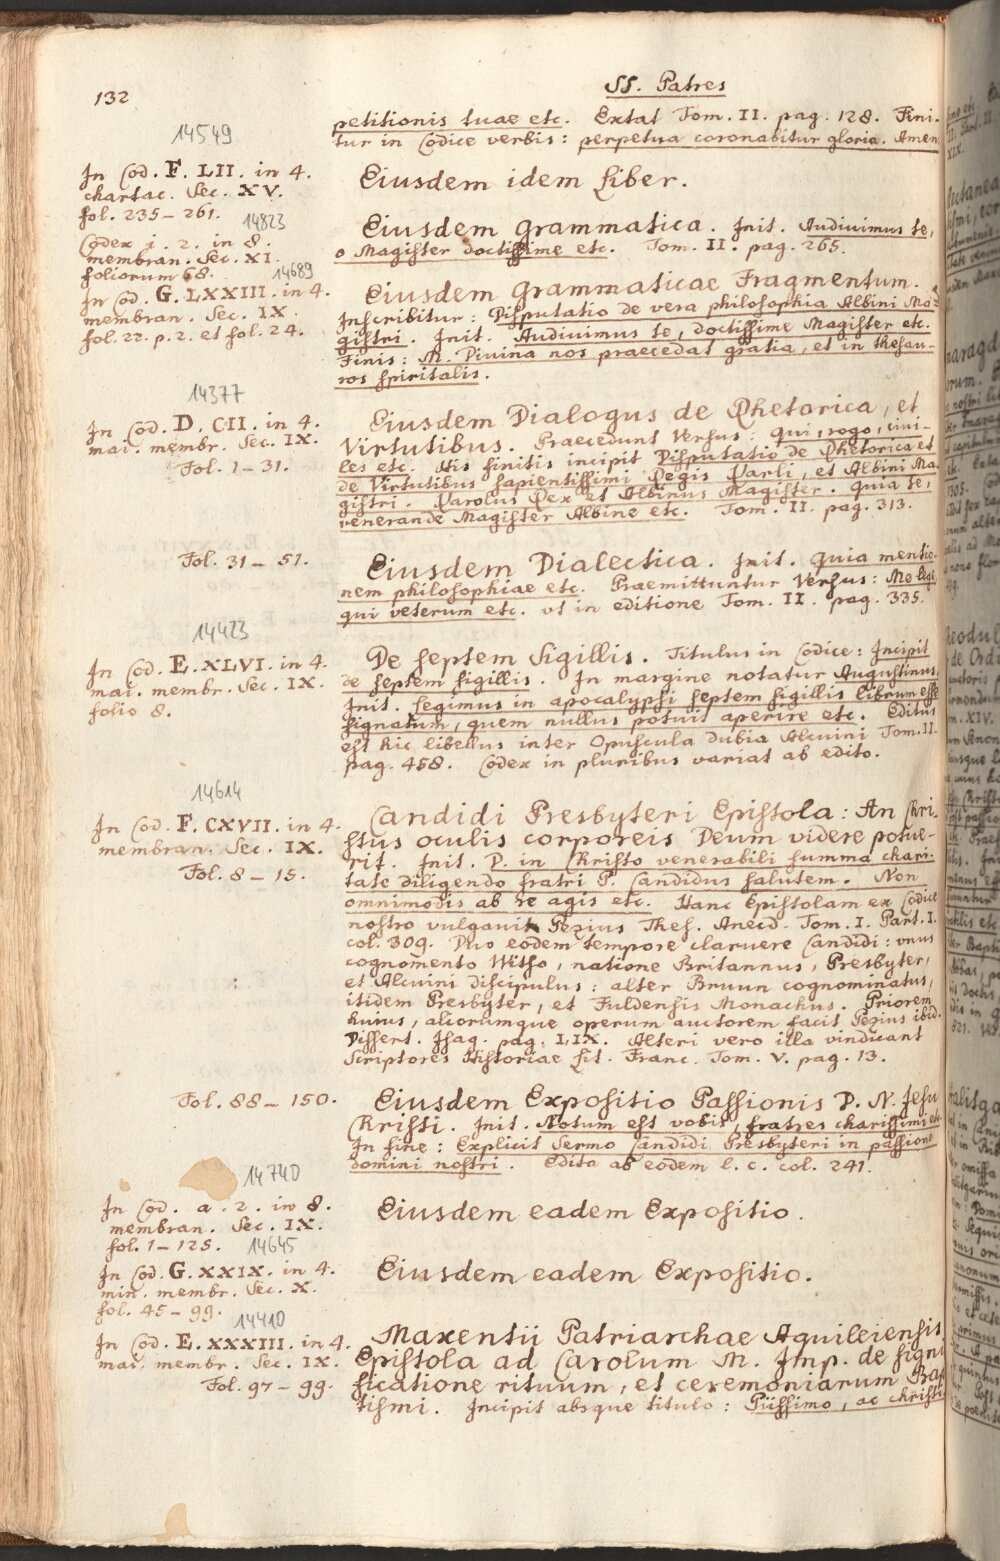 132
SS. Patres
petitionis tuae etc. Extat Tom. II. pag. 128. Fini-
tur in Codice verbis: perpetua coronabitur gloria. Amen
14549
In Cod. F. LII. in 4.
chartac. Sec. XV.
fol. 235–261.
Eiusdem idem Liber.
14823
Codex i. 2. in 8.
membran. Sec. XI.
foliorum 68.
Eiusdem Grammatica. Init. Audiuimus te,
o Magister doctissime etc. Tom. II. pag. 265.
14689
In Cod. G. LXXIII. in 4.
membran. Sec. IX.
fol. 22. p. 2. et fol. 24.
Eiusdem Grammaticae Fragmentum.
Inscribitur: Disputatio de vera philosophia Albini Ma-
gistri. Init. Audiuimus te, doctissime Magister etc.
Finis: M. Diuina nos praecedat gratia, et in thesau-
ros spiritalis.
14377
In Cod. D. CII. in 4.
mai. membr. Sec. IX.
Fol. 1–31.
Eiusdem Dialogus de Rhetorica, et
Virtutibus. Praecedunt Versus: Qui, rogo, ciui-
les etc. His finitis incipit Disputatio de Rhetorica et
de Virtutibus sapientissimi Regis Karli, et Albini Ma-
gistri. Karolus Rex et Albinus Magister. Quia te,
venerande Magister Albine etc. Tom. II. pag. 313.
Fol. 31–51.
Eiusdem Dialectica. Init. Quia mentio-
nem philosophiae etc. Praemittuntur Versus: Me lege,
qui veterum etc. vt in editione Tom. II. pag. 335.
14423
In Cod. E. XLVI. in 4.
mai. membr. Sec. IX.
folio 8.
De septem Sigillis. Titulus in Codice: Incipit
de septem sigillis. In margine notatur Augustinus.
Init. Legimus in apocalypsi septem sigillis librum esse
signatum, quem nullus potuit aperire etc. Editus
est hic libellus inter Opuscula dubia Alcuini Tom. II.
pag. 458. Codex in pluribus variat ab edito.
14614
In Cod. F. CXVII. in 4.
membran. Sec. IX.
Fol. 8–15.
Candidi Presbyteri Epistola: An Chri-
stus oculis corporeis Deum videre potue-
rit. Init. D. in Christo venerabili summa chari-
tate diligendo fratri P. Candidus salutem. Non
omnimodis ab re agis etc. Hanc Epistolam ex Codice
nostro vulgauit Pezius Thes. Anecd. Tom. I. Part. I.
col. 309. Duo eodem tempore claruere Candidi: vnus
cognomento Witso, natione Britannus, Presbyter,
et Alcuini Discipulus: alter Bruun cognominatus,
itidem Presbyter, et Fuldensis Monachus. Priorem
huius, aliorumque operum auctorem facit Pezius ibid.
Dissert. Isag. pag. LIX. Alteri vero illa vindicant
Scriptores Historiae Lit. Franc. Tom. V. pag. 13.
Fol. 88–150.
Eiusdem Expositio Passionis D. N. Jesu
Christi. Init. Notum est vobis, fratres charissimi etc
In fine: Explicit Sermo Candidi Presbyteri in passione
domini nostri. Edita ab eodem l. c. col. 241.
14740
In Cod. a. 2. in 8.
membran. Sec. IX.
fol. 1–125.
Eiusdem eadem Expositio.
14645
In Cod. G. XXIX. in 4.
min. membr. Sec. X.
fol. 45–99.
Eiusdem eadem Expositio.
14410
In Cod. E. XXXIII. in 4.
mai. membr. Sec. IX.
Fol. 97–99.
Maxentii Patriarchae Aquileiensis
Epistola ad Carolum M. Imp. de signi
ficatione rituum, et ceremoniarum Bap
tismi. Incipit absque titulo: Piissimo, ac christi